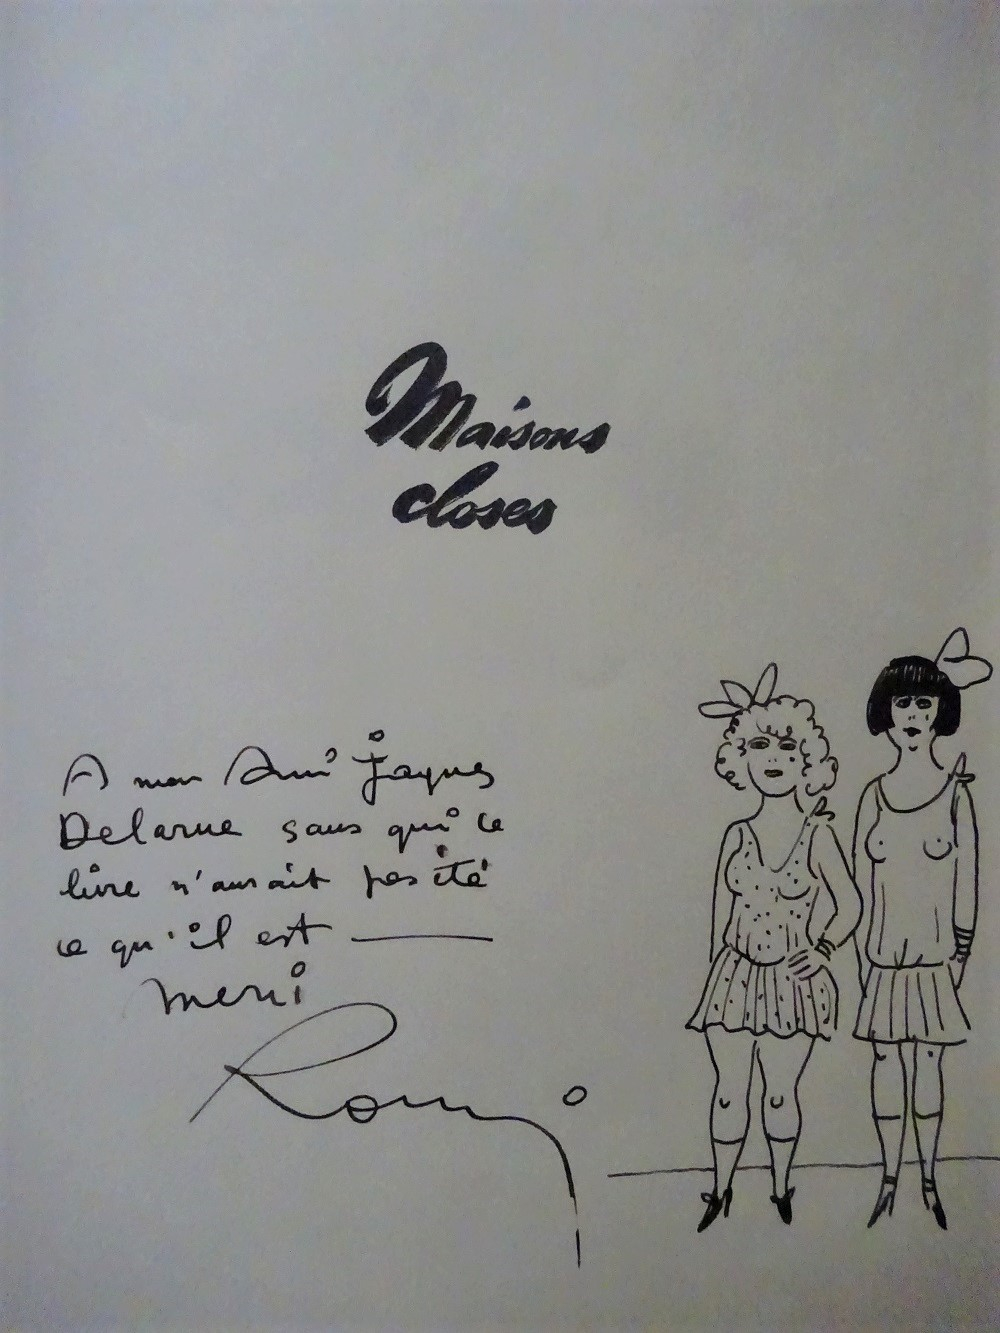 Maisons
closes
A mon Ami Jacques
Delarue sans qui ce
livre n'aurait pas été
ce qu'il est
merci
Romi